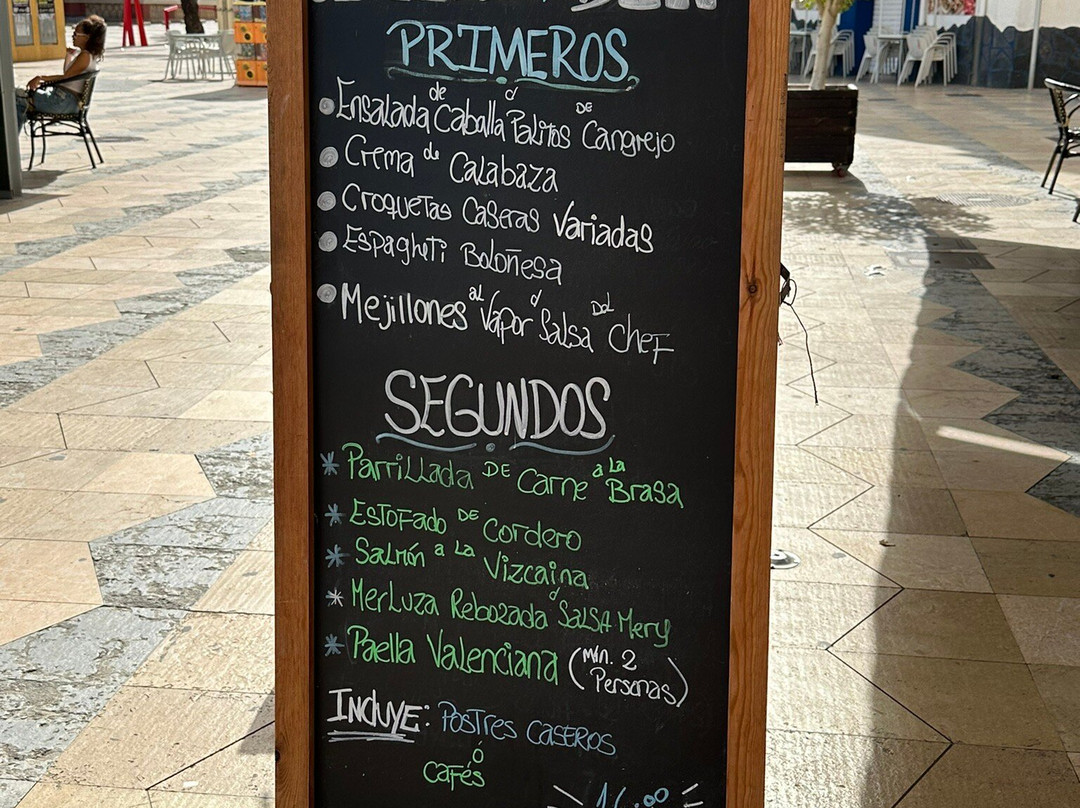 PRIMEROS
Ensalada de Caballa ó Palitos DE Cangrejo
Crema de Calabaza
Croquetas Caseras Variadas
Espagheti Boloñesa
Mejillones al Vapor ó Salsa Del Chef
SEGUNDOS
Parrillada DE Carne a la Brasa
Estofado DE Cordero
Salmón a La Vizcaina
Merluza Rebozada ó Salsa Mery
Paella Valenciana (Mín. 2 Personas)
Incluye: Postres Caseros
ó
Cafés